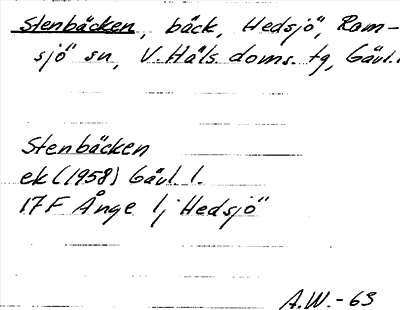 Stenbäcken, bäck, Hedsjö, Ram-
sjö sn, V. Häls. doms. tg, Gävl. l.
Stenbäcken
ek (1958) Gävl. l.
17F Ånge 1j Hedsjö
A.W.-63